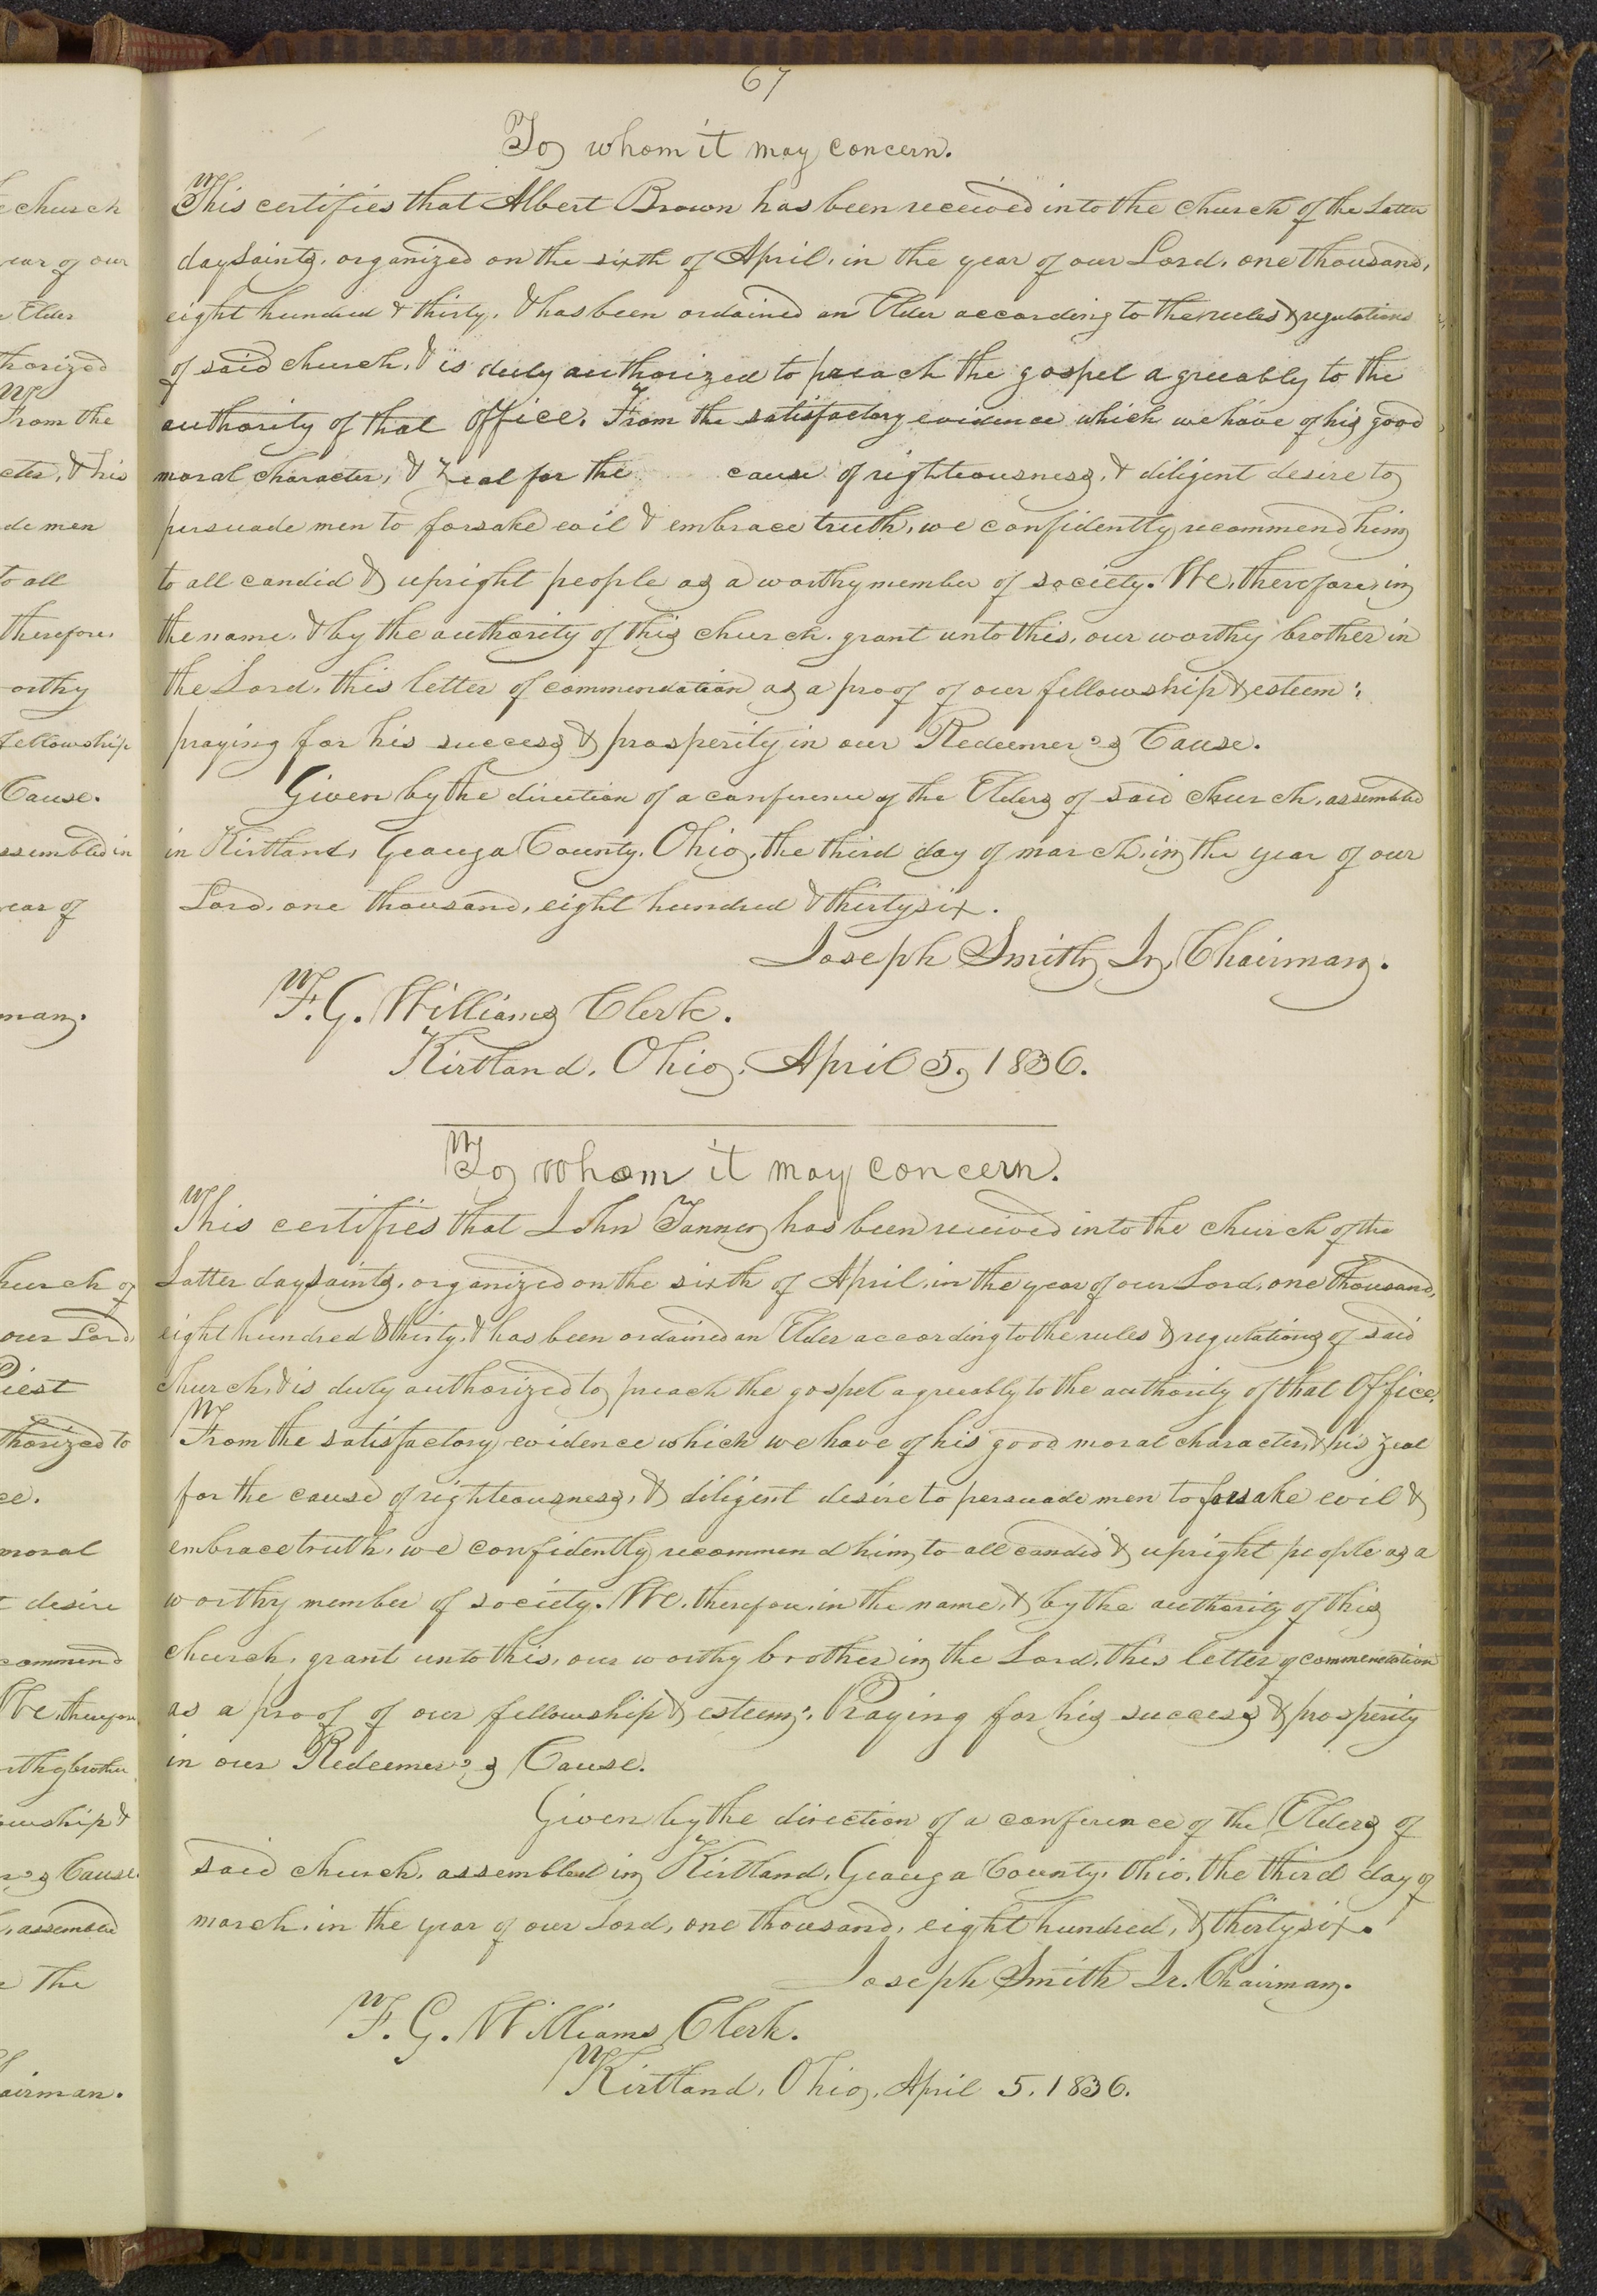 67
To whom it may concern.
This certifies that Albert Brown has been received into the church of the Latter
day Saints, organized on the sixth of April, in the year of our Lord, one thousand,
eight hundred & thirty, & has been ordained an Elder according to the rules & regulations
of said church, & is duly authorized to preach the gospel agreeably to the
authority of that office. From the satisfactory evidence which we have of his good
moral character, & zeal for the cause of righteousness, & diligent desire to
persuade men to forsake evil & embrace truth, we confidently recommend him
to all candid & upright people as a worthy member of society. We, therefore, in
the name, & by the authority of this church, grant unto this, our worthy brother in
the Lord, this letter of commendation as a proof of our fellowship & esteem:
praying for his success & prosperity in our Redeemer's Cause.
Given by the direction of a conference of the Elders of said church, assembled
in Kirtland, Geauga County, Ohio, the third day of march, in the year of our
Lord, one thousand, eight hundred & thirty six.
Joseph Smith Jr, Chairman.
F. G. Williams Clerk.
Kirtland, Ohio, April 5, 1836.
To whom it may concern.
This certifies that John Tanner has been received into the church of the
Latter day Saints, organized on the sixth of April, in the year of our Lord, one thousand,
eight hundred & thirty, & has been ordained an Elder according to the rules & regulations of said
church, & is duly authorized to preach the gospel agreeably to the authority of that Office.
From the satisfactory evidence which we have of his good moral character, & his zeal
for the cause of righteousness, & diligent desire to persuade men to forsake evil &
embrace truth, we confidently recommend him to all candid & upright people as a
worthy member of society. We, therefore, in the name, & by the authority of this
church, grant unto this, our worthy brother in the Lord, this letter of commendation
as a proof of our fellowship & esteem: Praying for his success & prosperity
in our Redeemer's Cause.
Given by the direction of a conference of the Elders of
said church, assembled in Kirtland, Geauga County, Ohio, the third day of
march, in the year of our Lord, one thousand, eight hundred, & thirty six.
Joseph Smith Jr. Chairman.
F. G. Williams Clerk.
Kirtland, Ohio, April 5, 1836.